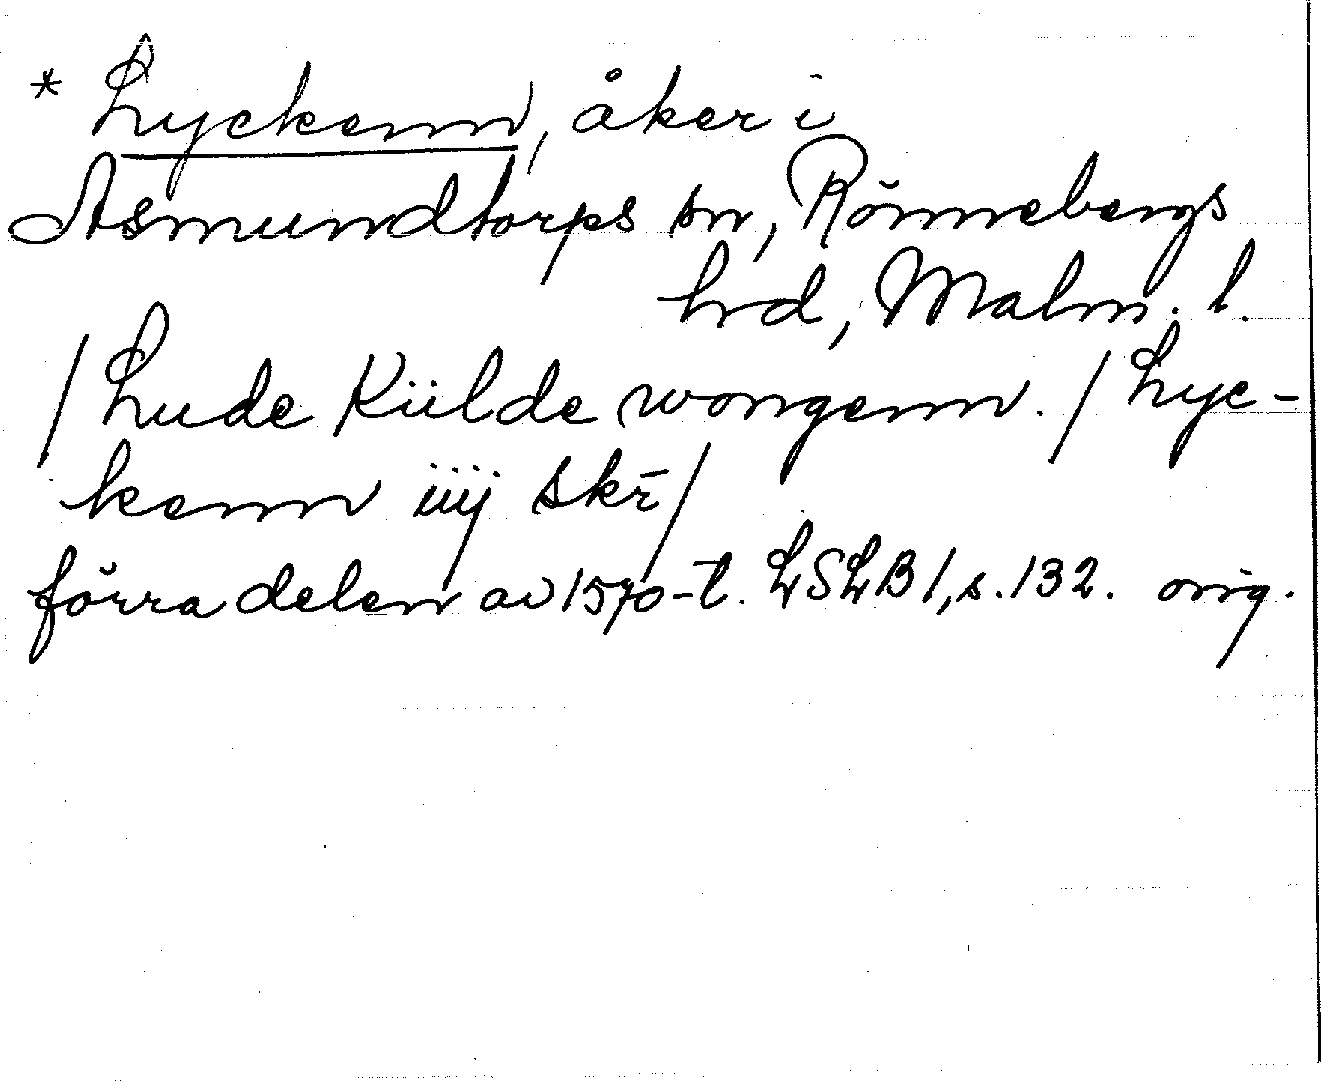 * Lyckenn, åker i
Asmundtorps sn, Rönnebergs
hrd, Malm. l.
/ Lude Kiilde wongenn. / Lyc-
kenn iiij skr̄ /
förra delen av 1570-t. LSLB 1, s. 132. orig.